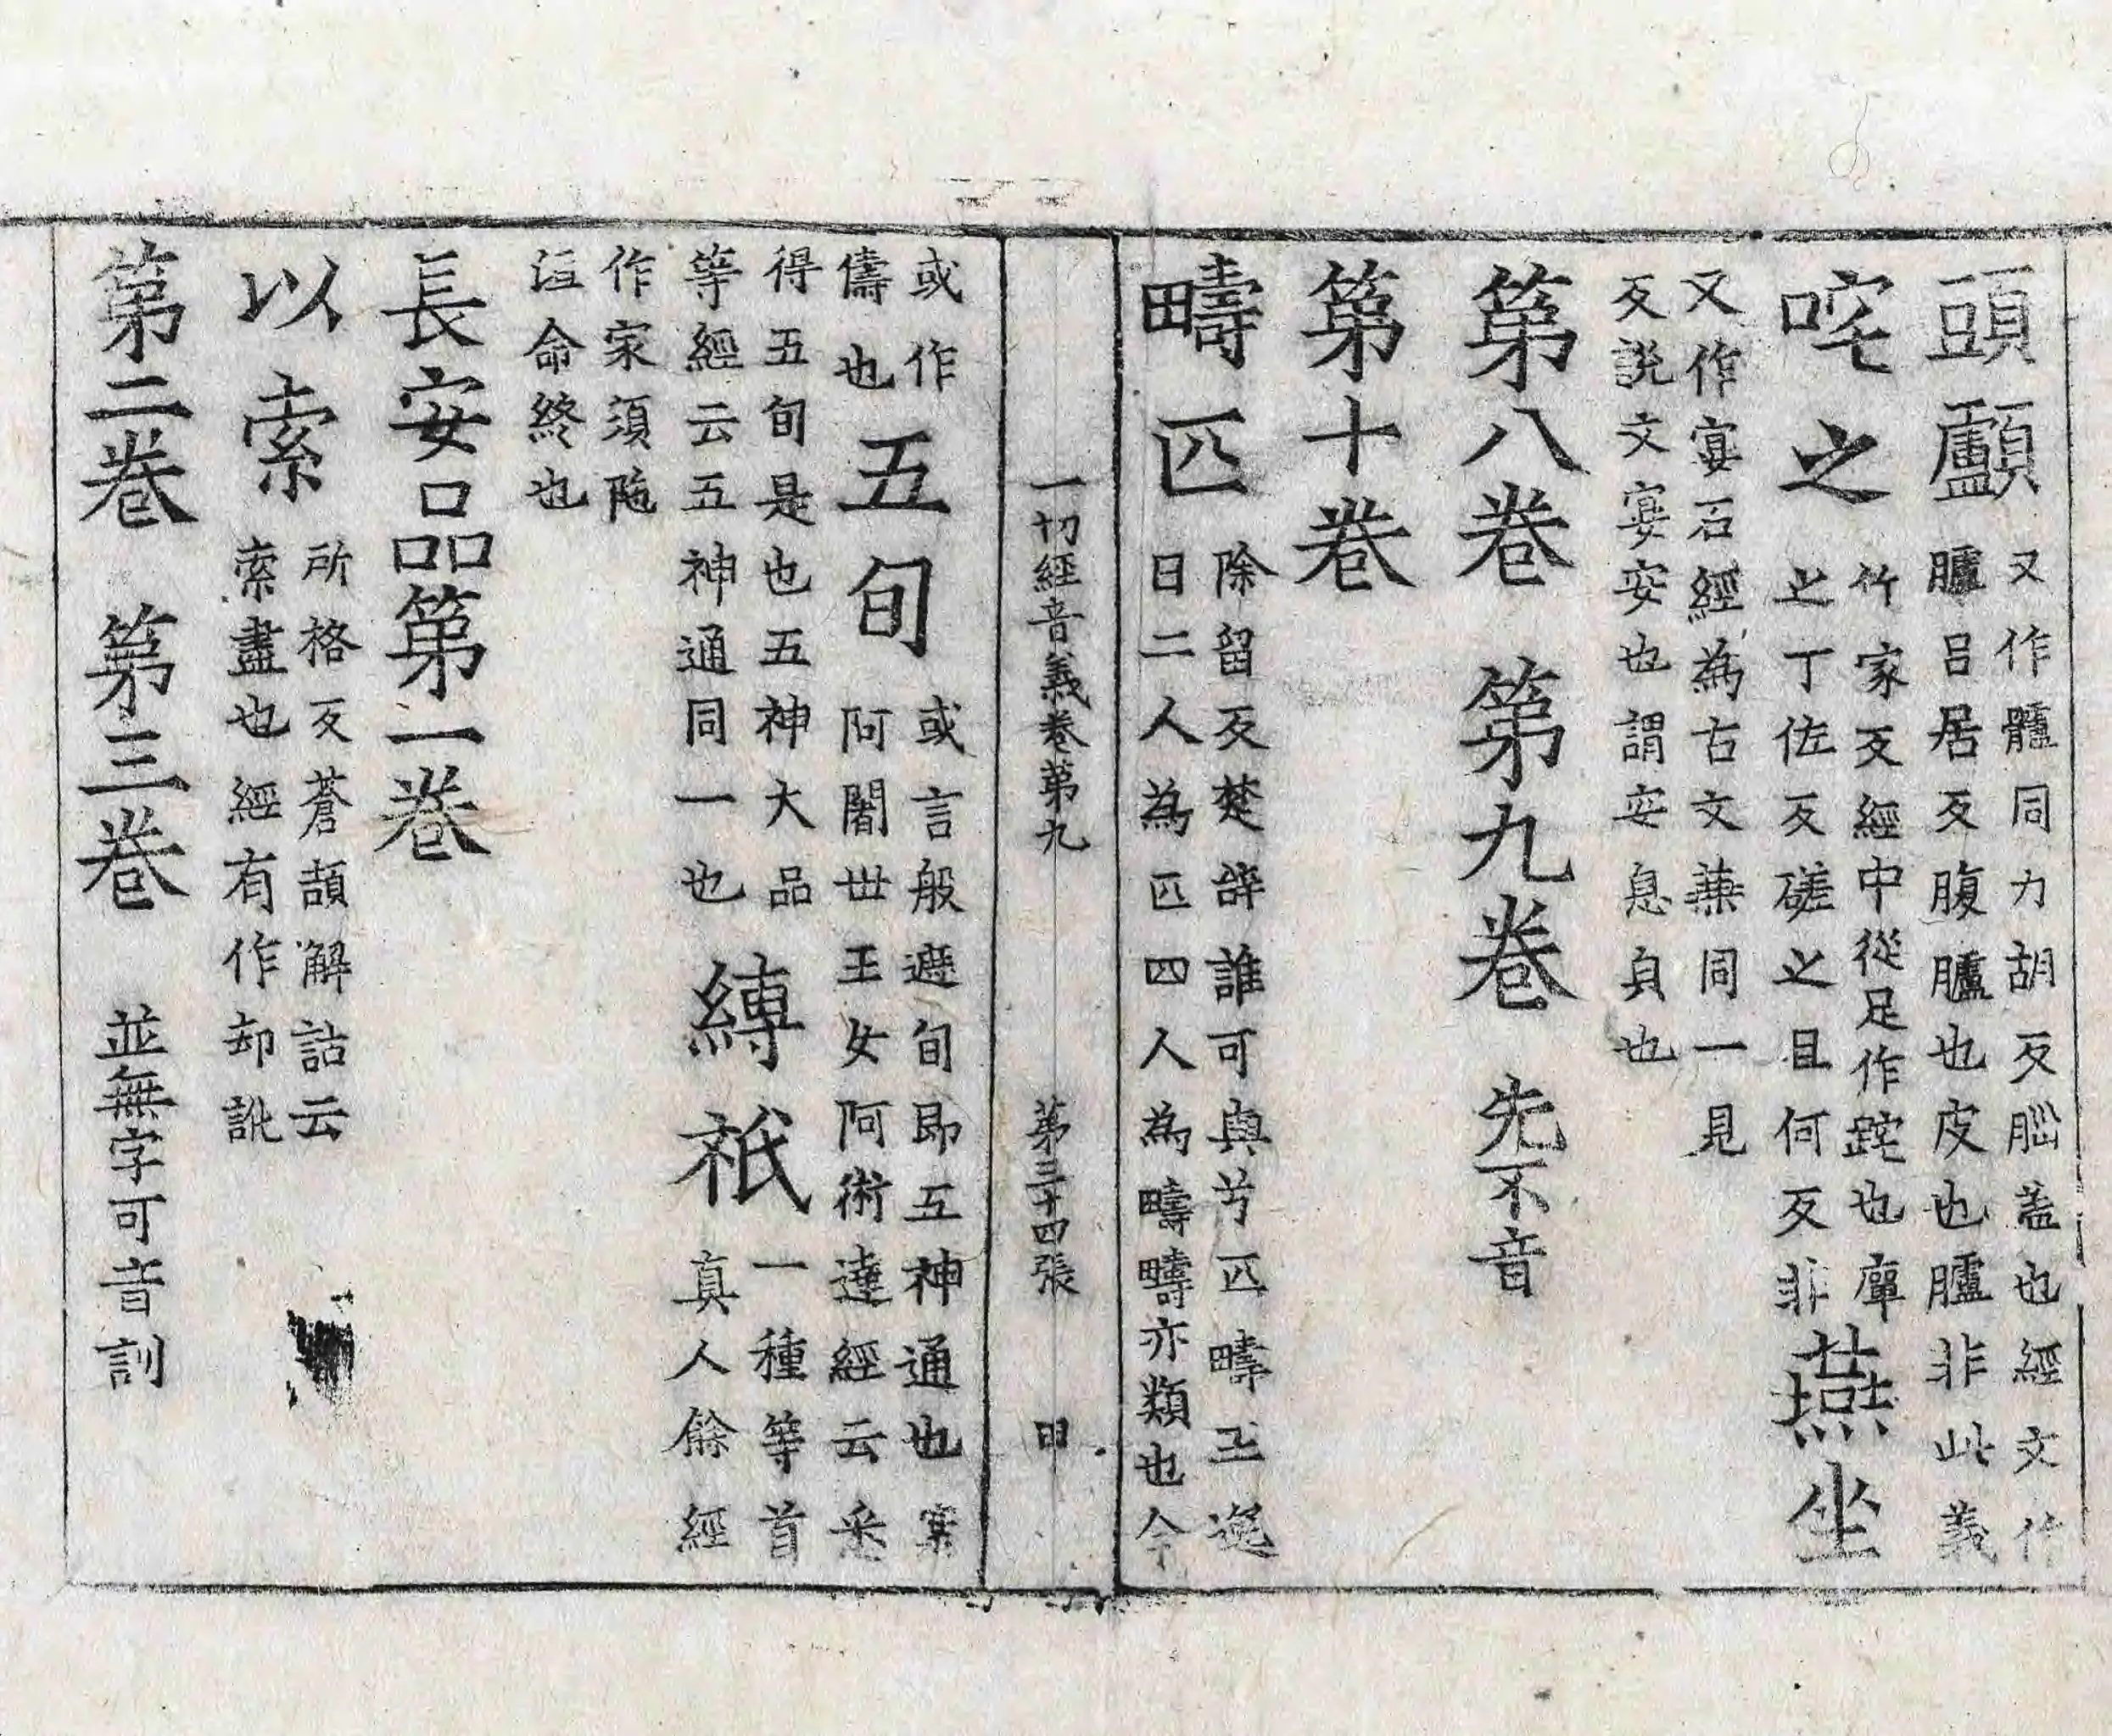 頭顱又作髗同力胡反腦盖也經文作
臚呂居反腹臚也皮也臚非此義
咤之竹家反經中從足作䟕也庫
㞢丁佐反磋之且何反非燕坐
又作宴石經為古文䴏同一見
反說文宴安也謂安息皃也
第八卷 第九卷 先不音
第十卷
疇匹除留反楚辞誰可與兮匹疇王逸
曰二人為匹四人為疇疇亦類也今
一切經音義卷第九 第三十四張 申
或作
儔也五旬或言般遮旬即五神通也案
阿闍世王女阿術達經云悉
得五旬是也五神大品
等經云五神通同一也縛祇一種等首
真人餘經
作家須陁
洹命終也
長安品第一卷
以索所格反蒼頡解詁云
索盡也經有作却訛
第二卷 第三卷 並無字可音訓